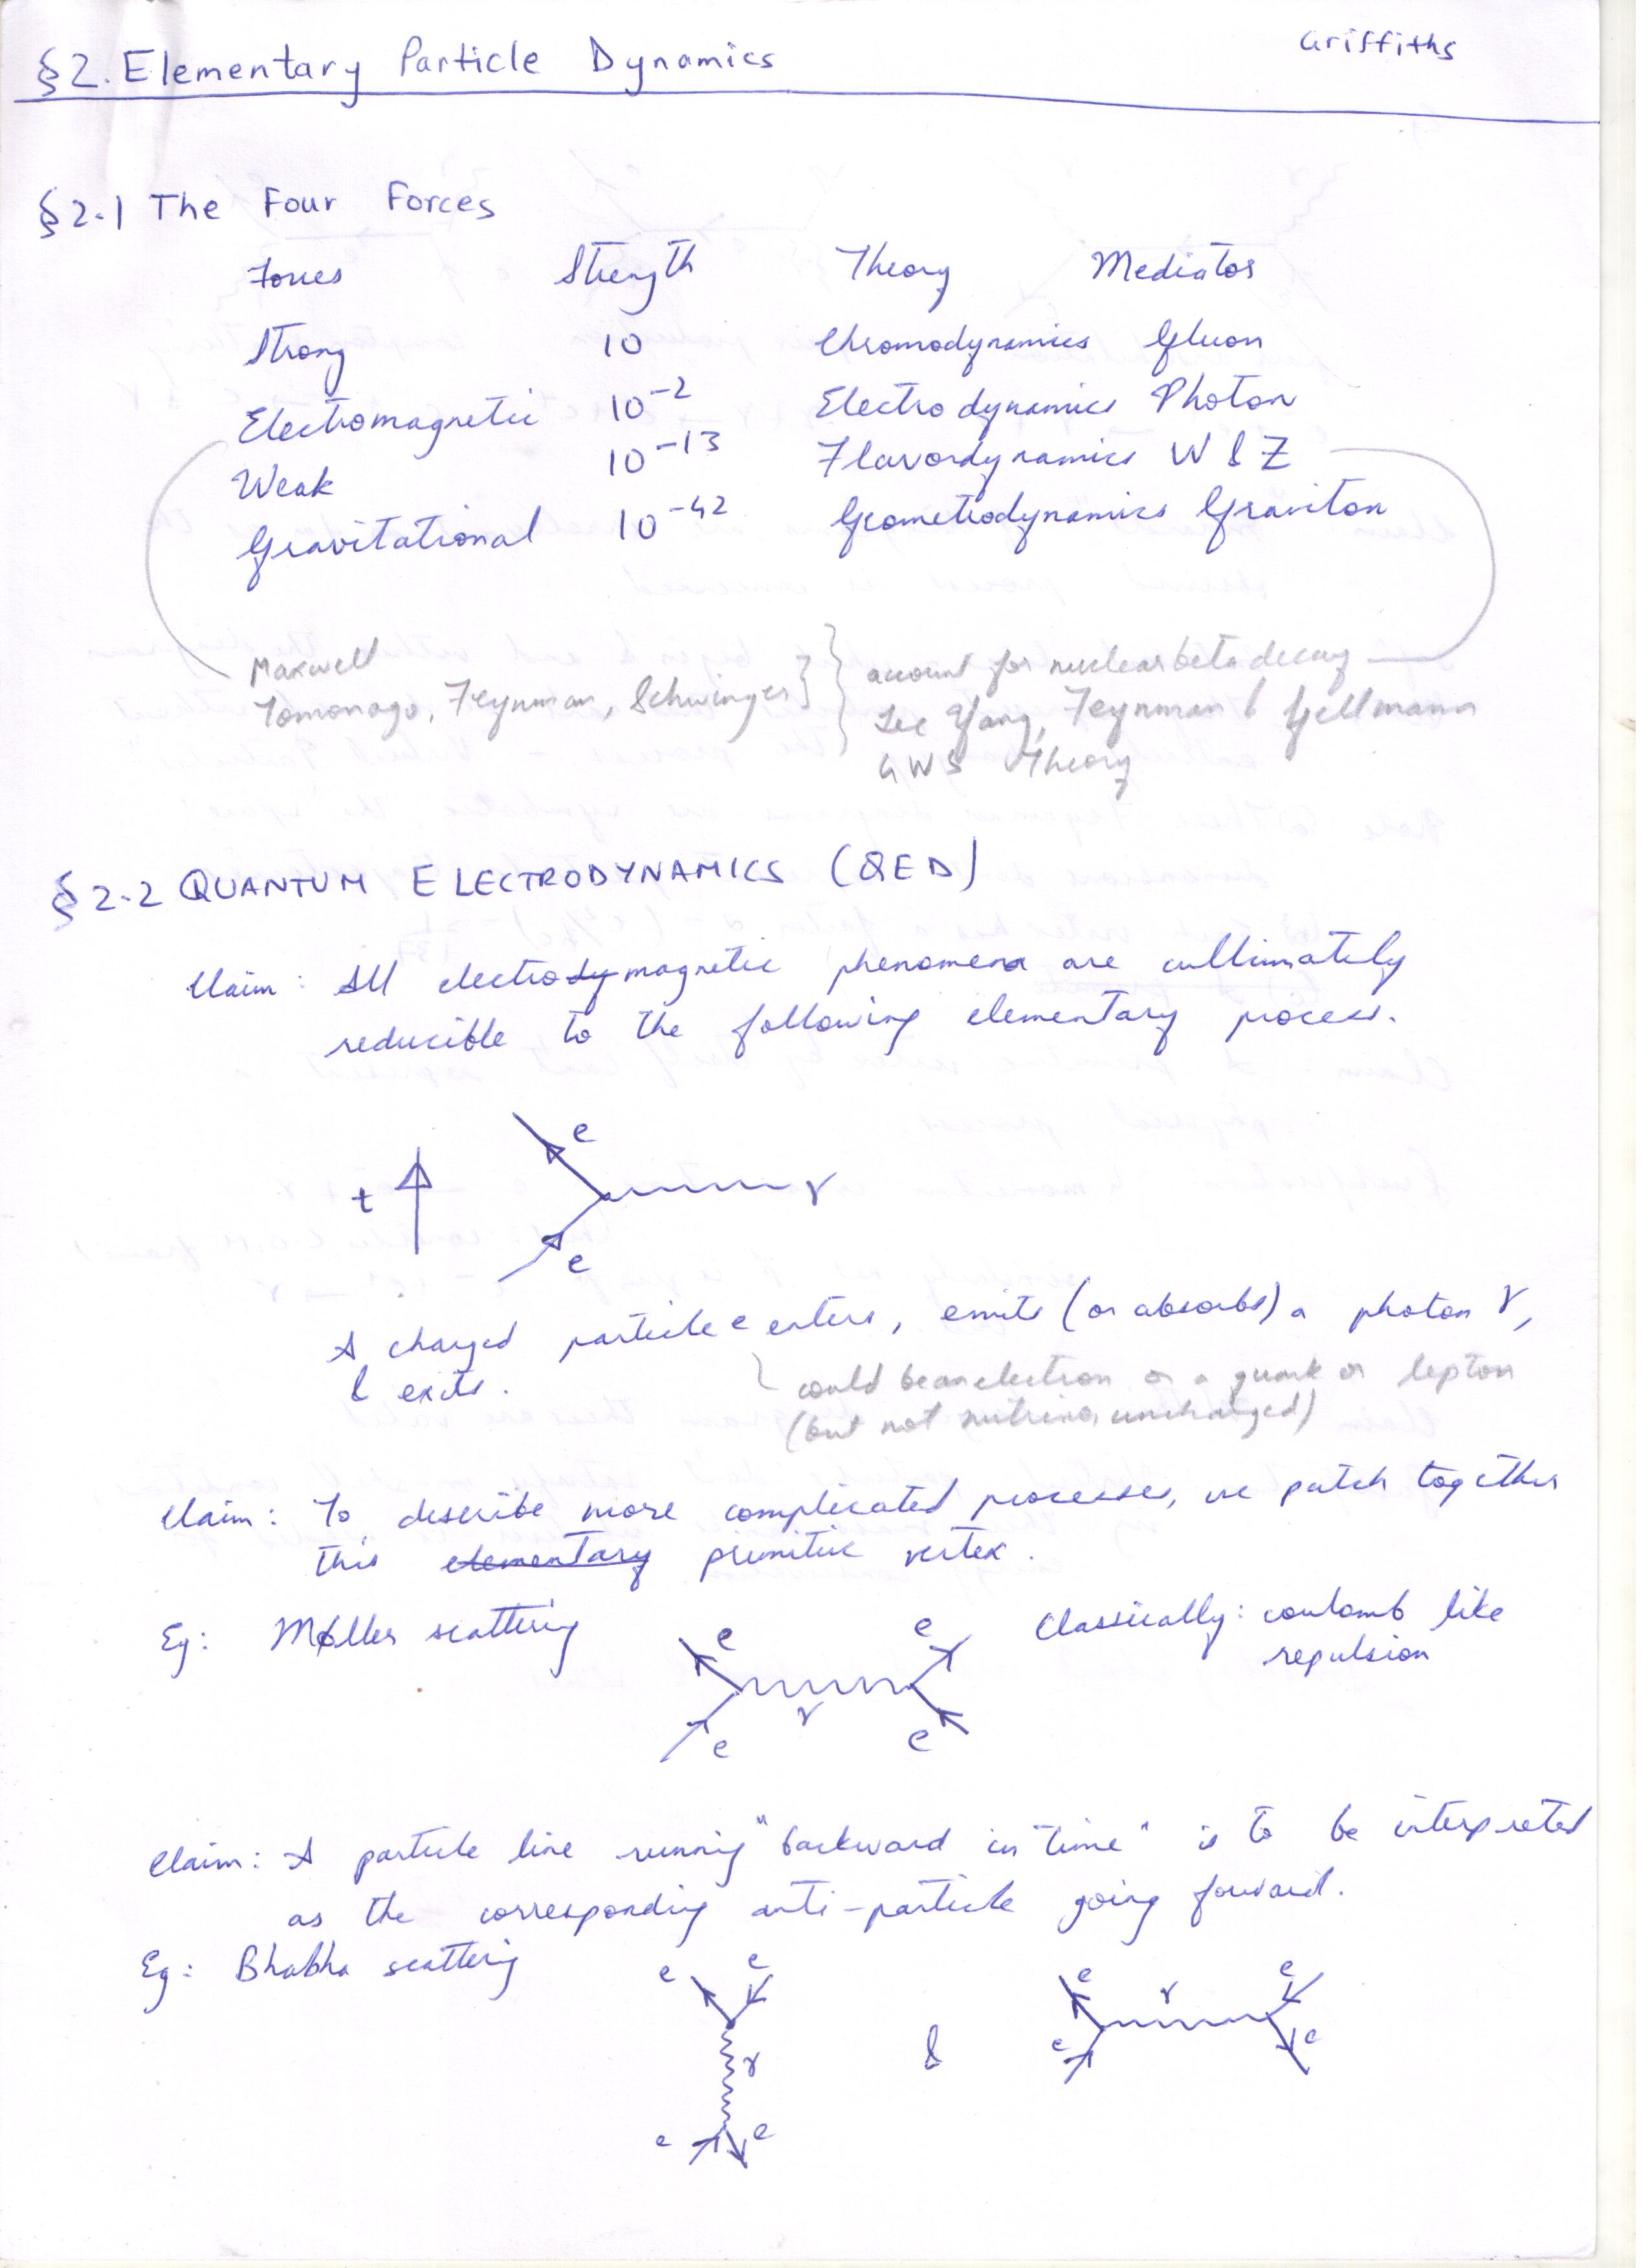 Griffiths
§2. Elementary Particle Dynamics
§2.1 The Four Forces
Forces Strength Theory Mediator
Strong 10 Chromodynamics Gluon
Electromagnetic 10^-2 Electrodynamics Photon
Weak 10^-13 Flavordynamics W & Z
Gravitational 10^-42 Geometrodynamics Graviton
Maxwell
Tomonago, Feynman, Schwinger
account for nuclear beta decay
Lee Yang, Feynman & Gellmann
GWS Theory
§2.2 QUANTUM ELECTRODYNAMICS (QED)
Claim: All electrody magnetic phenomena are ultimately
reducible to the following elementary process.
e
t γ
e
A charged particle e enters, emits (or absorbs) a photon γ,
& exits.
could be an electron or a quark or lepton
(but not nutrino, uncharged)
Claim: To describe more complicated processes, we patch together
this elementary primitive vertex.
Eg: Møller scattering
Classically: coulomb like
repulsion
e e
γ
e e
Claim: A particle line running "backward in time" is to be interpreted
as the corresponding anti-particle going forward.
Eg: Bhabha scattering
e e
γ
e e
&
e γ e
e e